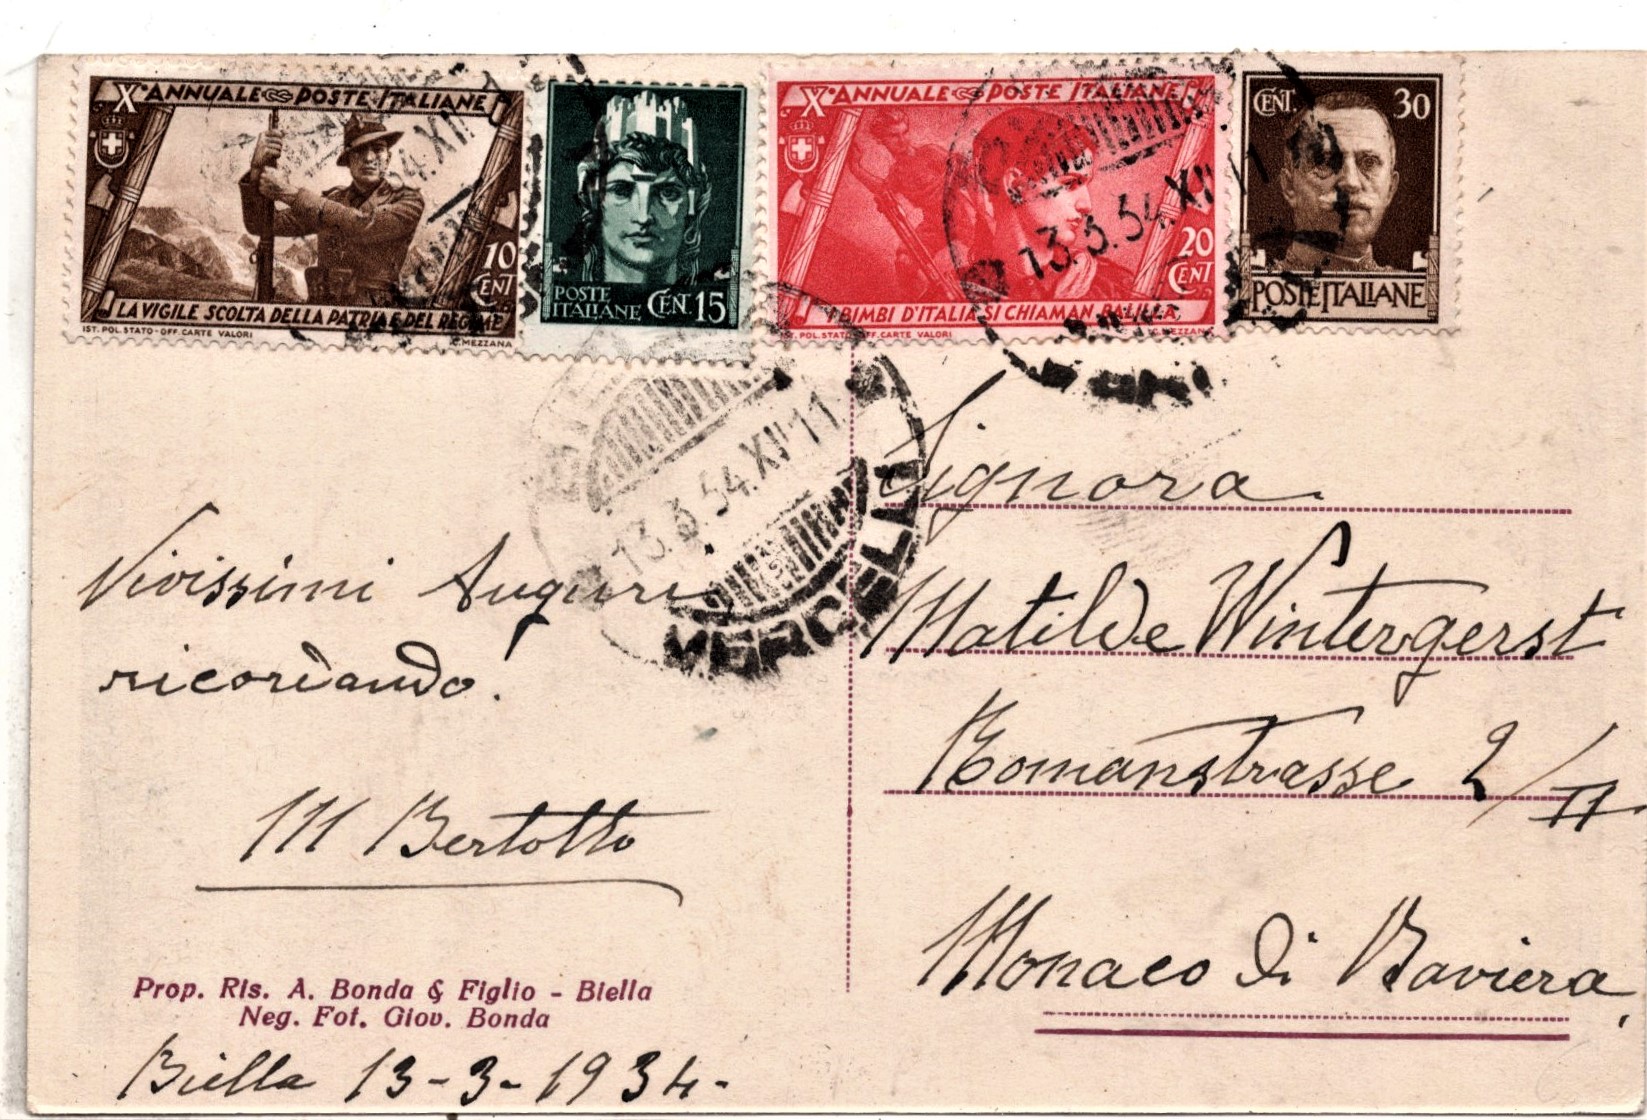 Xº ANNUALE POSTE ITALIANE
10
CENT
LA VIGILE SCOLTA DELLA PATRIA E DEL REGIME
IST. POL. STATO - OFF. CARTE VALORI
C. MEZZANA
POSTE
ITALIANE CEN. 15
Xº ANNUALE POSTE ITALIANE
20
CENT
I BIMBI D'ITALIA SI CHIAMAN BALILLA
IST. POL. STATO - OFF. CARTE VALORI
C. MEZZANA
CENT. 30
POSTE ITALIANE
54.XII
13.3.54.XII 11
13.3.54.XII 11
VERCELLI
Vivissimi Auguri
ricordando.
M Bertotto
Prop. Ris. A. Bonda & Figlio - Biella
Neg. Fot. Giov. Bonda
Biella 13-3-1934-
Signora
Matilde Wintergerst
Romanstrasse 2/II
Monaco di Baviera